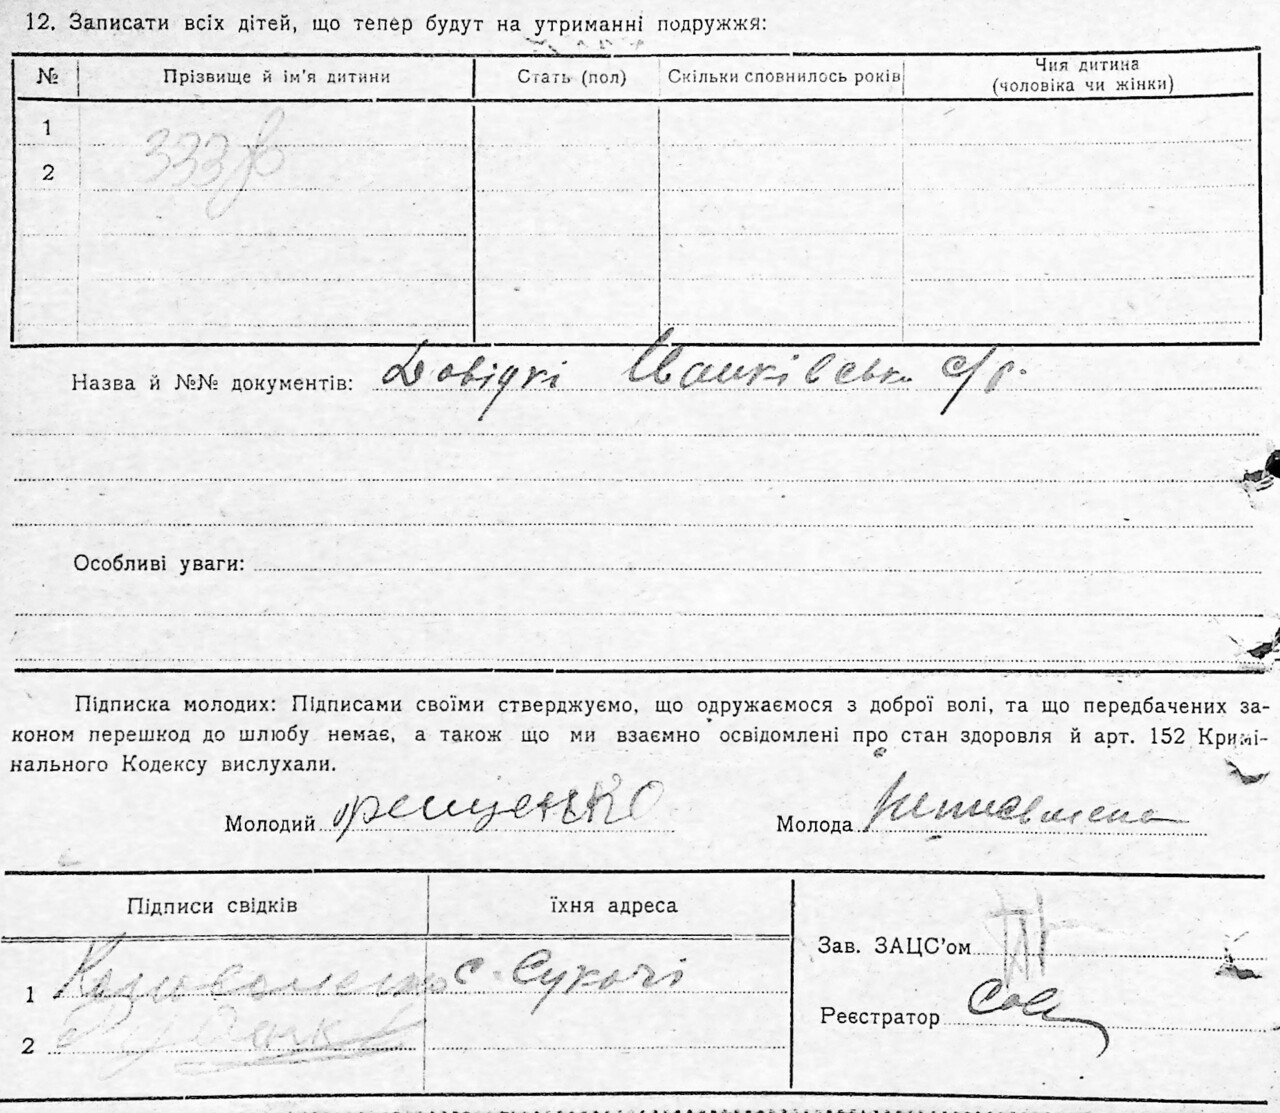 12. Записати всіх дітей, що тепер будут на утриманні подружжя:
№ Прізвище й ім'я дитини Стать (пол) Скільки сповнилось років Чия дитина
(чоловіка чи жінки)
1
333
2
Назва й №№ документів: Довідкі Іванківськ. с/р.
Особливі уваги:
Підписка молодих: Підписами своїми стверджуємо, що одружаємося з доброї волі, та що передбачених за-
коном перешкод до шлюбу немає, а також що ми взаємно освідомлені про стан здоровля й арт. 152 Кримі-
нального Кодексу вислухали.
Молодий Молода неписьмена
Підписи свідків їхня адреса
Зав. ЗАЦС'ом
1 с. Сукачі
Реєстратор
2